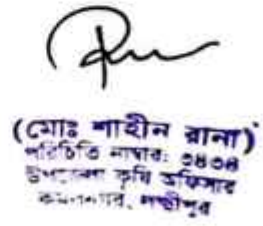 (মোঃ শাহীন রানা)
পরিচিতি নাম্বার: ৩৪০৪
উপজেলা কৃষি অফিসার
কমলনগর, লক্ষ্মীপুর